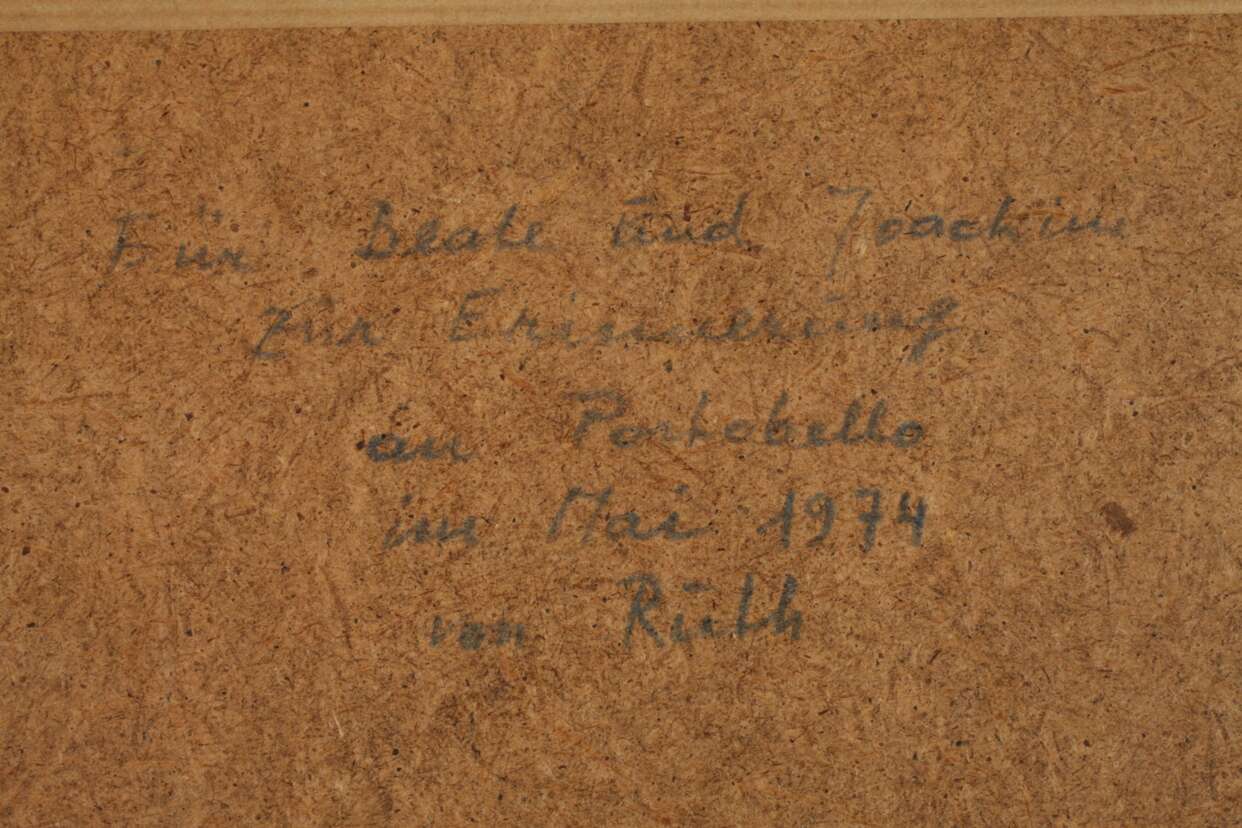 Für Beate und Joachim
zur Erinnerung
an Portobello
im Mai 1974
von Ruth